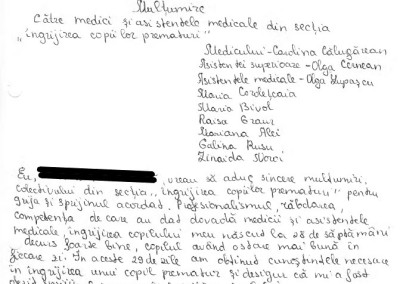 Mulțumire
Către medici și asistentele medicale din secția
„îngrijirea copiilor prematuri”
Medicului - Carolina Călugărean
Asistentei superioare - Olga Cernean
Asistentele medicale - Olga Lupașcu
Maria Cordeleaia
Maria Bivol
Raisa Grauz
Mariana Alei
Galina Rusu
Zinaida
Eu, , vreau să aduc sincere mulțumiri
colectivului din secția „îngrijirea copiilor prematuri” pentru
grija și sprijinul acordat. Profesionalismul, răbdarea,
competența de care au dat dovadă medicii și asistentele
medicale, îngrijirea copilului meu născut la 28 de săptămâni
decurs foarte bine, copilul având o stare mai bună în
fiecare zi. În aceste 29 de zile am obținut cunoștințele necesare
în îngrijirea unui copil prematur și desigur că mi-a fost